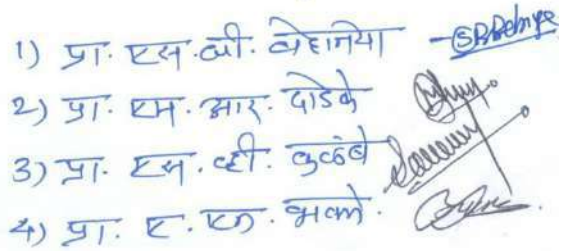 1) प्रा. एस. बी. बेहानिया
2) प्रा. एम. आर. दोडके
3) प्रा. एस. व्ही. कुळंबे
4) प्रा. ए. एन. भक्ते.